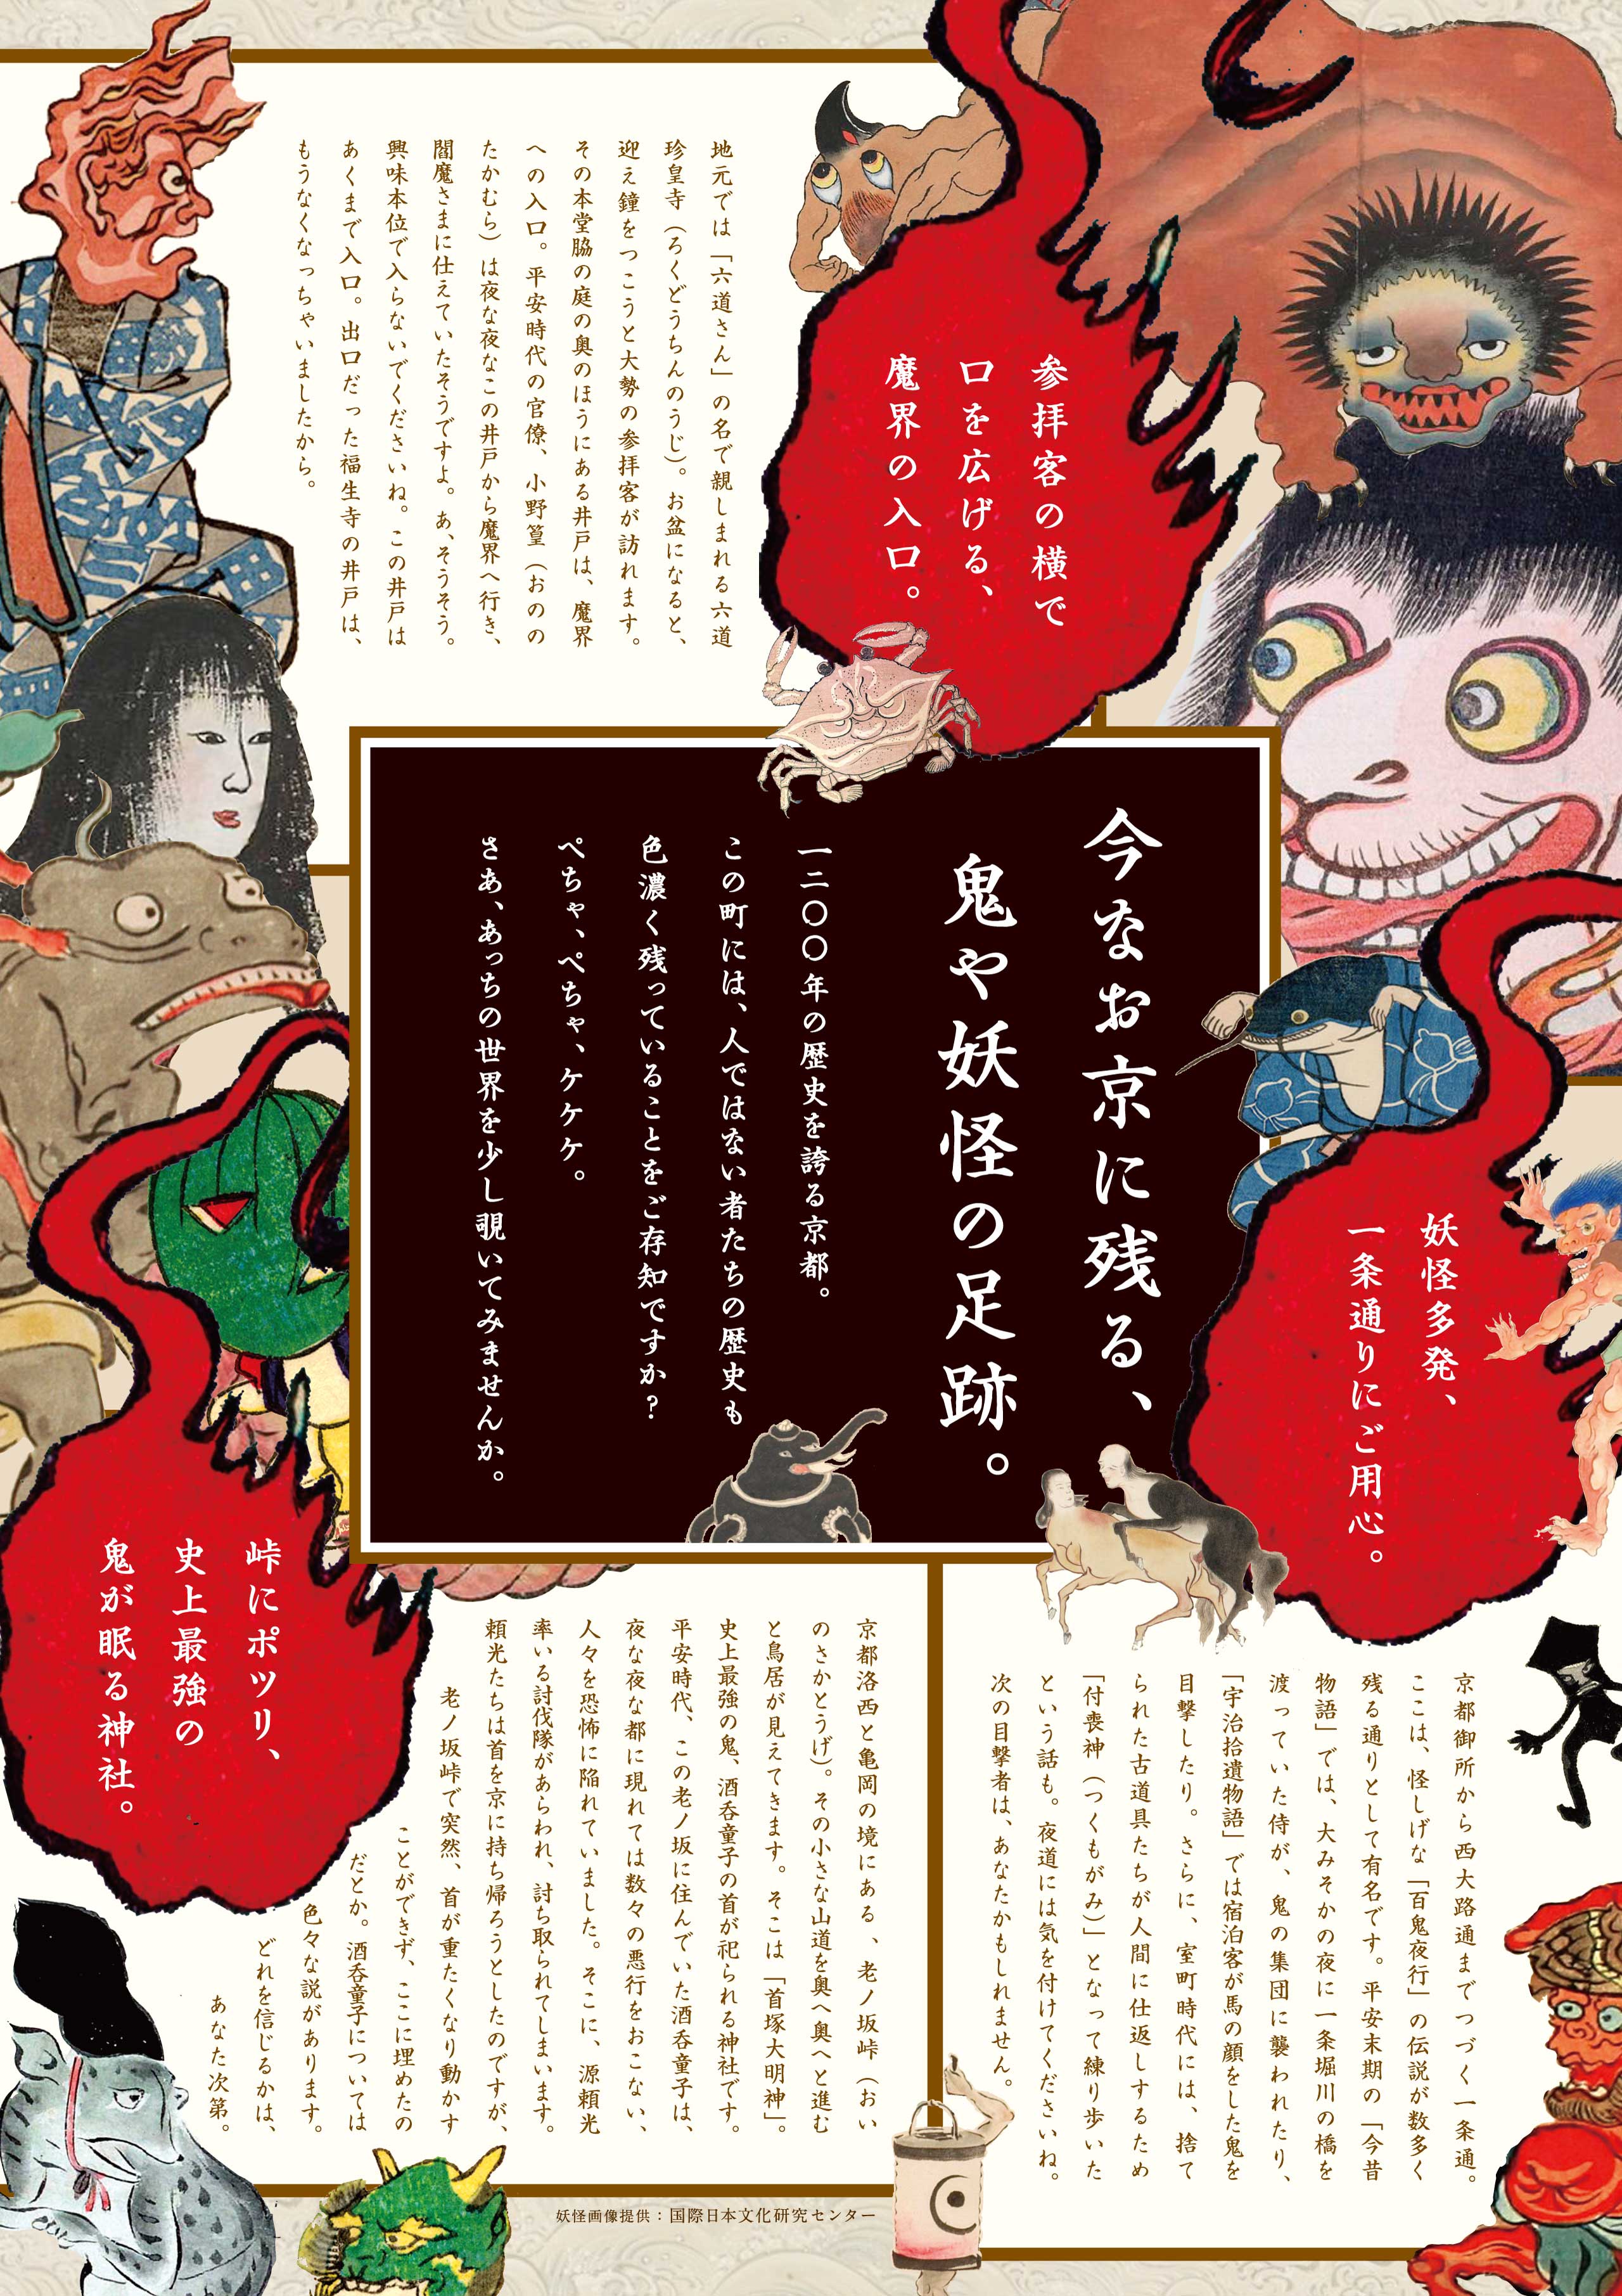 今なお京に残る、
鬼や妖怪の足跡。
一二〇〇年の歴史を誇る京都。
この町には、人ではない者たちの歴史も
色濃く残っていることをご存知ですか?
ぺちゃ、ぺちゃ、ケケケ。
さあ、あっちの世界を少し覗いてみませんか。
参拝客の横で
口を広げる、
魔界の入口。
地元では「六道さん」の名で親しまれる六道
珍皇寺（ろくどうちんのうじ）。お盆になると、
迎え鐘をつこうと大勢の参拝客が訪れます。
その本堂脇の庭の奥のほうにある井戸は、魔界
への入口。平安時代の官僚、小野篁（おのの
たかむら）は夜な夜なこの井戸から魔界へ行き、
閻魔さまに仕えていたそうですよ。あ、そうそう。
興味本位で入らないでくださいね。この井戸は
あくまで入口。出口だった福生寺の井戸は、
もうなくなっちゃいましたから。
妖怪多発、
一条通りにご用心。
京都御所から西大路通までつづく一条通。
ここは、怪しげな「百鬼夜行」の伝説が数多く
残る通りとして有名です。平安末期の「今昔
物語」では、大みそかの夜に一条堀川の橋を
渡っていた侍が、鬼の集団に襲われたり、
「宇治拾遺物語」では宿泊客が馬の顔をした鬼を
目撃したり。さらに、室町時代には、捨て
られた古道具たちが人間に仕返しするため
「付喪神（つくもがみ）」となって練り歩いた
という話も。夜道には気を付けてくださいね。
次の目撃者は、あなたかもしれません。
峠にポツリ、
史上最強の
鬼が眠る神社。
京都洛西と亀岡の境にある、老ノ坂峠（おい
のさかとうげ）。その小さな山道を奥へ奥へと進む
と鳥居が見えてきます。そこは「首塚大明神」。
史上最強の鬼、酒呑童子の首が祀られる神社です。
平安時代、この老ノ坂に住んでいた酒呑童子は、
夜な夜な都に現れては数々の悪行をおこない、
人々を恐怖に陥れていました。そこに、源頼光
率いる討伐隊があらわれ、討ち取られてしまいます。
頼光たちは首を京に持ち帰ろうとしたのですが、
老ノ坂峠で突然、首が重たくなり動かす
ことができず、ここに埋めたの
だとか。酒呑童子については
色々な説があります。
どれを信じるかは、
あなた次第。
妖怪画像提供：国際日本文化研究センター